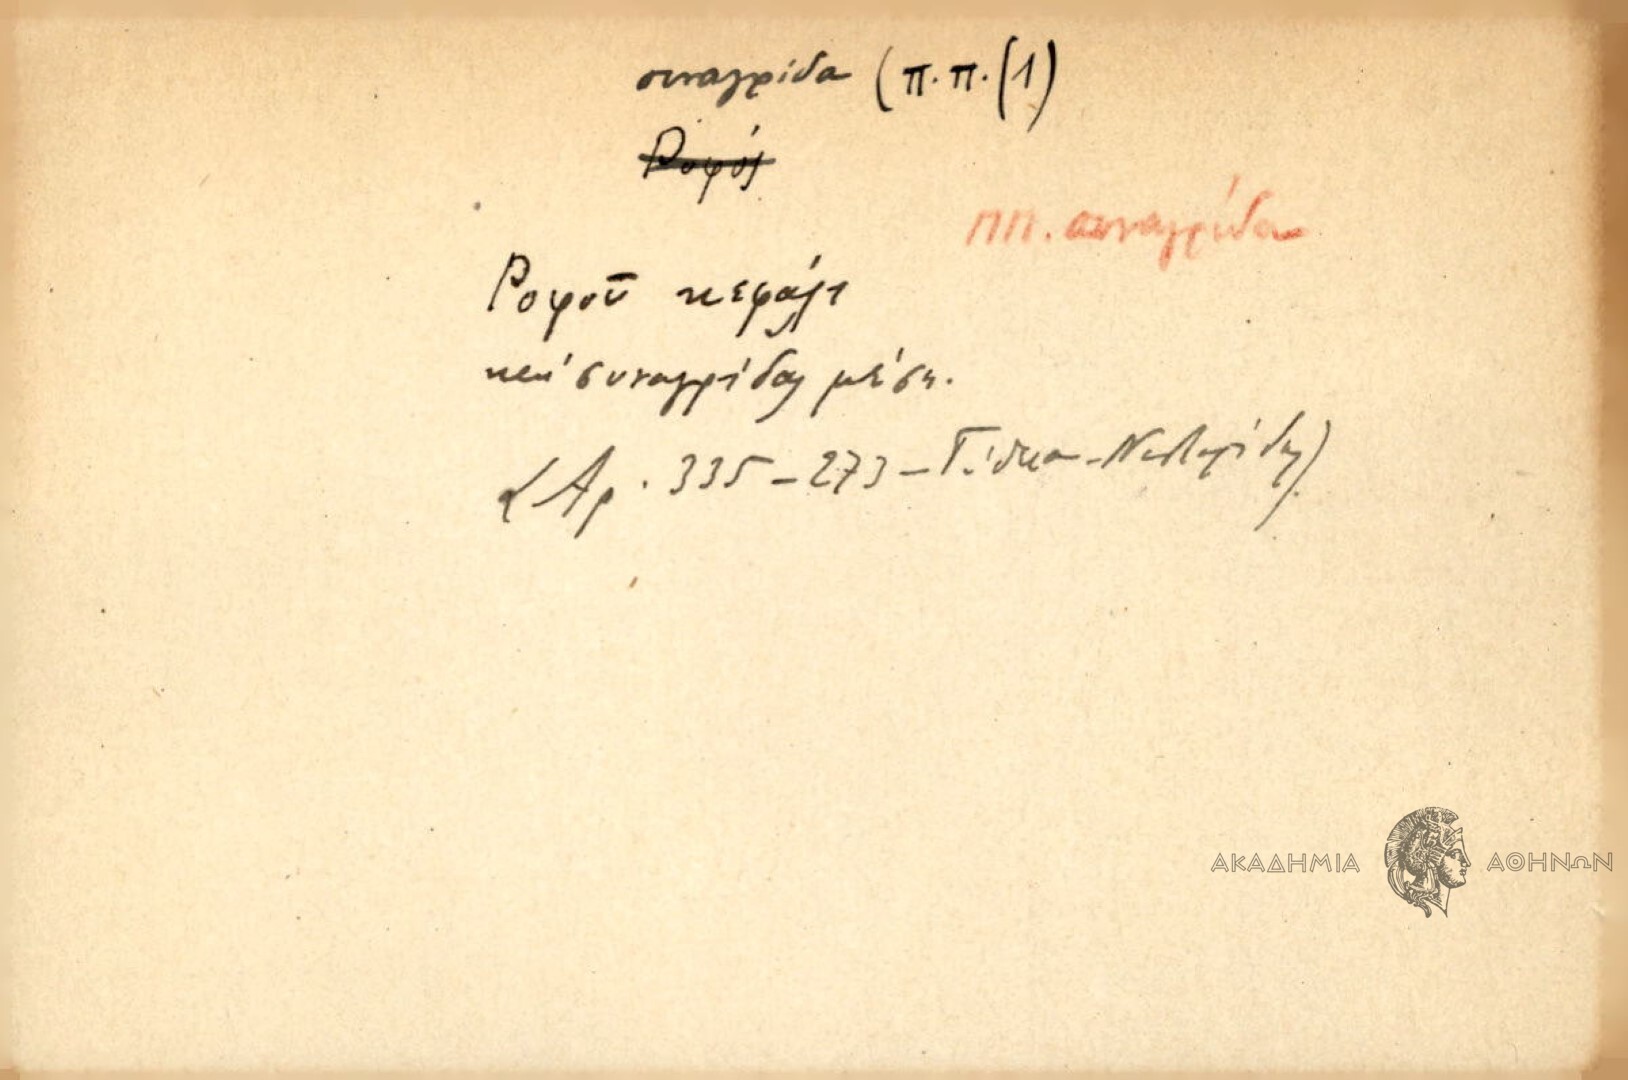 συναγρίδα (π.π.(1)
Ροφός
ΠΠ. συναγρίδα
Ροφού κεφάλι
και συναγρίδας μέση.
(Αρ. 335-273-
ΑΚΑΔΗΜΙΑ ΑΘΗΝΩΝ